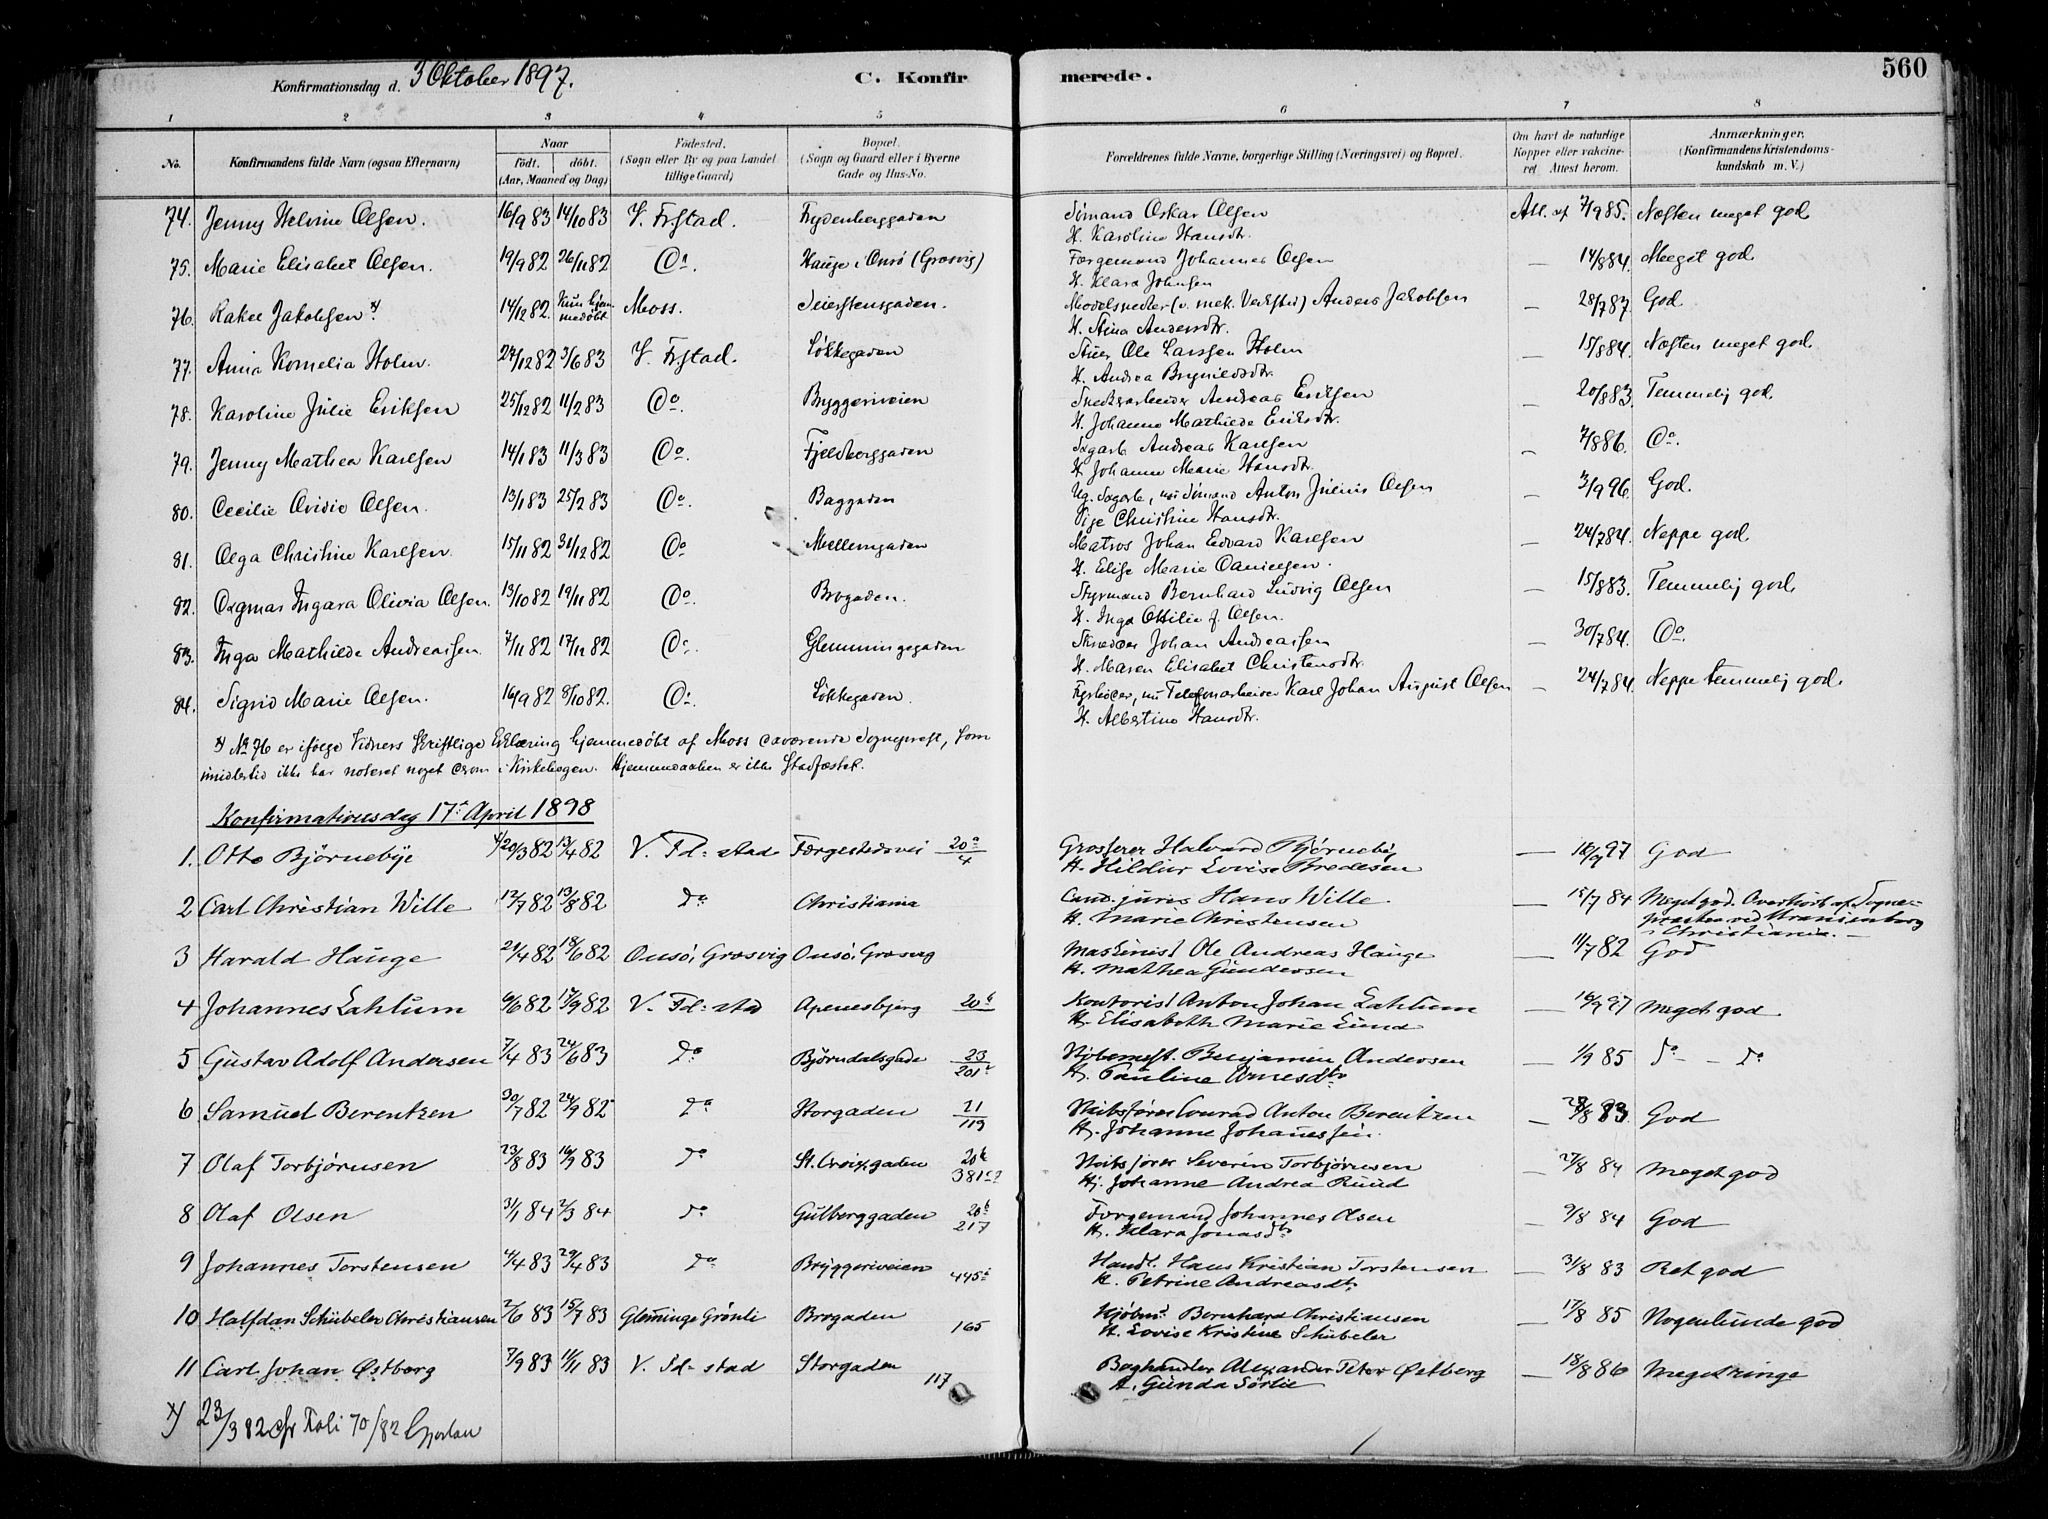 Konfirmationsdag d. 3 Oktober 1897. C. Konfirmerede. 560
1 2 3 4 5 6 7 8
No. Konfirmandens fulde Navn (ogsaa Efternavn) Naar født, døbt. (Aar, Maaned og Dag) Fødested. (Sogn eller By og paa Landet tillige Gaard) Bopæl. (Sogn og Gaard eller i Byerne Gade og Hus-No. Forældrenes fulde Navne, borgerlige Stilling (Næringsvei) og Bopæl. Om havt de naturlige Kopper eller vakcineret Attest herom. Anmærkninger, (Konfirmandens Kristendomskundskab m. V.)
74. Jenny Helvine Olsen. 16/9 83 14/10 83 V. Frstad. Frydenberggaden Sømand Oskar Olsen Att. af 7/9 85. Næsten meget god
H. Karoline Hansdr.
75. Marie Elisabet Olsen. 19/9 82 26/11 82 Do Hauge i Onsø (Gressvig) Færgemand Johannes Olsen — 14/8 84. Meget god
H. Klara Johnsen
76. Rakel Jakobsen x) 14/12 82. Kun hjemmedøbt. Moss. Seierstensgaden. Modelsnedker (v. mek. Verksted) Anders Jakobsen — 28/7 87. God
H. Stina Andersdr.
77. Anna Kornelia Holm. 27/12 82 3/6 83 V. Frstad. Løkkegaden Stuer Ole Larssen Holm — 15/8 84. Næsten meget god
H. Andrea Brynildsdr.
78. Karoline Julie Eriksen 25/12 82 11/2 83 Do. Byggeriveien Andreas Eriksen — 20/8 83. Temmelig god
H. Johanne Mathilde Eriksdr.
79. Jenny Mathea Karlsen 14/1 83 11/3 83 Do. Fjeldberggaden Sagarb. Andreas Karlsen — 7/8 86. Do.
H. Johanne Marie Hansdr.
80. Cecilie Ovidie Olsen. 13/1 83 25/2 83 Do. Baggaden Ug. Sagarb., nu Sømand Anton Julius Olsen — 3/9 96. God.
Pige Christine Hansdr.
81. Olga Christine Karlsen. 15/11 82 31/12 82 Do Mellemgaden Matros Johan Edvard Karlsen — 24/7 84. Neppe god
H. Elise Marie Danielsen.
82. Dagmar Ingara Olivia Olsen. 13/10 82 19/11 82 Do. Brogaden. Styrmand Bernhard Ludvig Olsen — 15/8 83. Temmelig god
H. Inga Ottilie f. Olsen.
83. Inga Mathilde Andreassen 7/11 82 17/12 82 Do. Glemmingegaden Skrædder Johan Andreassen — 30/7 84. Do.
H. Maren Elisabet Christensdtr.
84. Sigrid Marie Olsen. 16/9 82 8/10 82. Do. Løkkegaden. Fyrbøder, nu Telefonarbeider Karl Johan August Olsen — 24/7 84. Neppe temmelig god.
H. Albertine Hansdtr.
x) No 76 er ifølge Vidners skriftlige Erklæring hjemmedøbt af Moss daværende Sogneprest, som
imidlertid ikke har noteret noget derom i Kirkebogen. Hjemmedaaben er ikke stadfæstet.
Konfirmationsdag 17de April 1898
1. Otto Bjørnebye x) 20/3 82 13/4 82 V. Fd=stad Færgestedsvei 20a/4 Grosserer Halvard Bjørneby — 16/9 97 God
H. Hildur Lovise Bredesen
2 Carl Christian Wille 12/7 82 13/8 82 do Christiania Cand. juris Hans Wille — 15/7 84 Meget god. Overhørt af Sognepresten ved Uranienborg i Christiania.
H. Marie Christensen
3 Harald Hauge 21/4 82 18/6 82 Onsø, Gresvig Onsø, Gresvig Maskinist Ole Andreas Hauge — 11/7 82 God
H. Mathea Gundersen
4 Johannes Lahlum 6/6 82 17/9 82 V. Fd=stad Apenesbjerg 20b Kontorist Anton Johan Lahlum — 16/9 97 Meget god
H. Elisabeth Marie Lund
5 Gustav Adolf Andersen 7/4 83 24/6 83 do Bjørndalsgade 23/201 Benjamin Andersen — 1/9 85 do — do
H. Pauline Arnesdtr
6 Samuel Berentzen 30/7 82 24/9 82 do Storgaden 21/119 Skibsfører Conrad Anton Berentzen — 28/8 83. God
H. Johanne Johannessen.
7 Olaf Torbjørnsen 23/8 83 16/9 83 do St. Croixgaden 20b/381 Skibsfører Severin Torbjørnsen — 27/8 84 Meget god
H. Johanne Andrea Ruud
8 Olaf Olsen 31/1 84 2/3 84 do Gulberggaden 20b/217 Færgemand Johannes Olsen — 9/8 84 God
H. Klara Jonasdtr
9 Johannes Torstensen 4/4 83 29/4 83 do Bryggeriveien 445 Handl. Hans Kristian Torstensen — 31/8 83 Ret god
H. Petrine Andreasdtr
10 Halfdan Schübeler Christiansen 2/6 83 15/7 83 Glemminge Grønli Brogaden 165 Kjøbm. Bernhard Christiansen — 17/8 85 Nogenlunde god
H. Lovise Kristine Schübeler
11 Carl Johan Østberg 7/9 83 11/11 83 V. Fd=stad Storgaden 117 Boghandler Alexander Peter Østberg — 18/8 86 Meget ringe
H. Gunda Sørlie
x) 23/3 82 cfr Foli 70/82